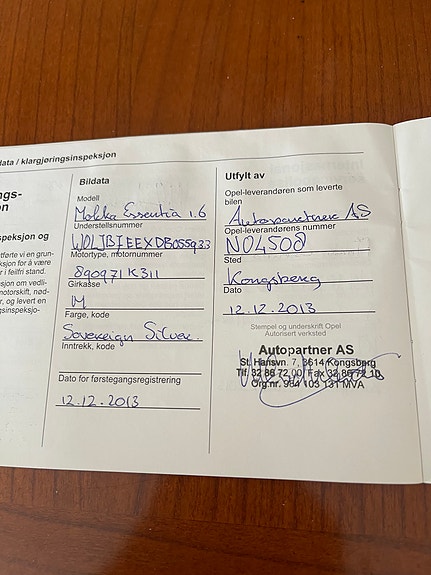 data / klargjøringsinspeksjon
ngs-
on
speksjon og
tførte vi en grun-
ksjon for å være
r i feilfri stand.
sjon om vedli-
motorskift, nød-
r, og levert en
gsinspeksjo-
Bildata
Modell
Mokka Essentia 1.6
Understellsnummer
Motortype, motornummer
Girkasse
M
Farge, kode
Sovereign Silver.
Inntrekk, kode
Dato for førstegangsregistrering
12.12.2013
Utfylt av
Opel-leverandøren som leverte
bilen
Autopartner AS
Opel-leverandørens nummer
NO4508
Sted
Kongsberg
Dato
12.12.2013
Stempel og underskrift Opel
Autorisert verksted
Autopartner AS
St. Hansvn. 7, 3614 Kongsberg
Tlf. 32 86 72 00 Fax 32 86 72 10
Org.nr. 984 103 131 MVA